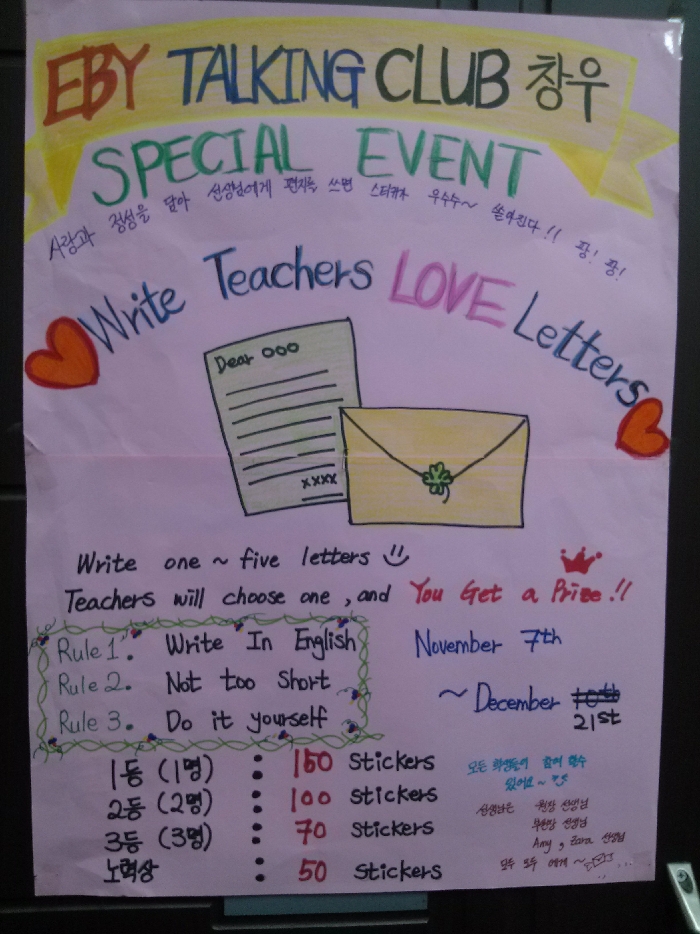 EBY TALKING CLUB 창우
SPECIAL EVENT
A랑과 정성을 담아 선생님에게 편지를 쓰면 스티커가 우수수~ 쏟아진다!! 팡! 팡!
Write Teachers LOVE Letters
Dear OOO
xxxx
Write one ~ five letters
Teachers will choose one, and You Get a Prize!!
Rule 1. Write In English
Rule 2. Not too Short
Rule 3. Do it yourself
November 7th
~ December 10th
21st
1등 (1명) : 150 Stickers
2등 (2명) : 100 Stickers
3등 (3명) : 70 Stickers
노력상 : 50 Stickers
모든 학생들이 참여 할수
있어요~
선생님은 원장 선생님
부원장 선생님
Amy, Zara 선생님
모두 모두 에게~